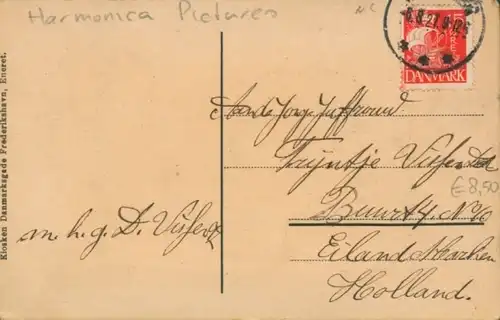 Harmonica Pictures
NC
15
DANMARK
Aan de Jonge Juffrouw
Trijntje Visser
€8,50
Buurt 4, No
Eiland Marken
Holland.
m. h. g. D. Visser
Kiosken Danmarksgade Frederikshavn, Eneret.